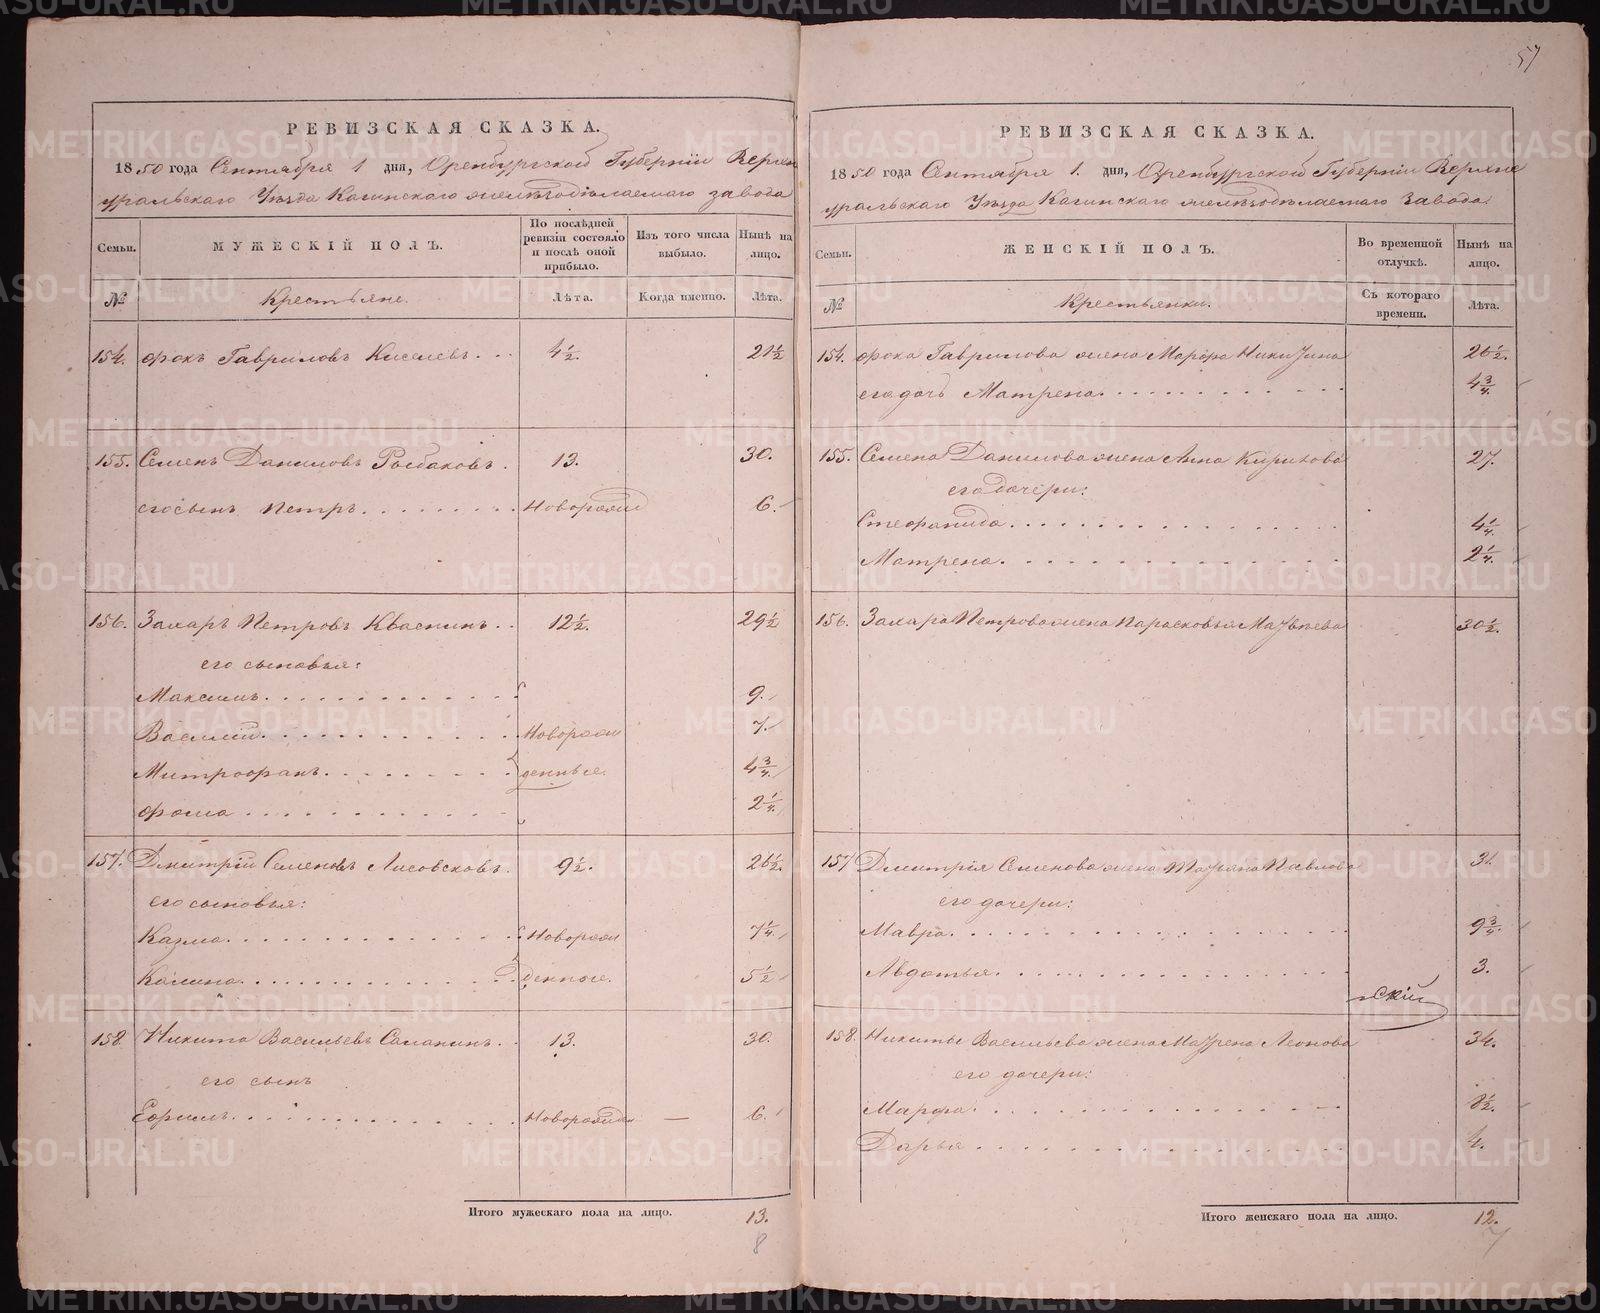 57
РЕВИЗСКАЯ СКАЗКА.
1850 года Сентября 1 дня, Оренбургской Губернiи Верхне
уральскаго Уѣзда Кагинскаго желѣзодѣлаемаго завода
Семьи.
МУЖЕСКIЙ ПОЛЪ.
По послѣдней ревизiи состояло и послѣ оной прибыло.
Изъ того числа выбыло.
Нынѣ на лицо.
№
Крестьяне.
Лѣта.
Когда именно.
Лѣта.
154. Фокъ Гавриловъ Киселевъ 4½. 21½
155. Семенъ Даниловъ Рыбаковъ. 13. 30.
его сынъ Петръ. Новорожд 6.
156. Захаръ Петровъ Кваснинъ. 12½. 29½
его сыновья:
Максимъ. 9.
Василiй. Новорож 7.
Митрофанъ. денные. 4¾.
Фома 2¼.
157. Дмитрiй Семеновъ Лисовсковъ. 9½. 26½.
его сыновья:
Казма. Новорож 7¼.
Калина. денные. 5½
158. Никита Васильевъ Саманинъ. 13. 30.
его сынъ
Ефимъ. Новорожде — 6.
Итого мужескаго пола на лицо. 13.
8
РЕВИЗСКАЯ СКАЗКА.
1850 года Сентября 1. дня, Оренбургской Губернiи Верхне
уральскаго Уѣзда Кагинскаго желѣзодѣлаемаго Завода.
Семьи.
ЖЕНСКIЙ ПОЛЪ.
Во временной отлучкѣ.
Нынѣ на лицо.
№
Крестьянки.
Съ котораго времени.
Лѣта.
154. Фока Гаврилова жена Марфа Никитина 26½.
его дочь Матрена. 4¾.
155. Семена Данилова жена Анна Кирилова 27.
его дочери:
Стефанида. 4¼.
Матрена. 2¼.
156. Захара Петрова жена Парасковья Матвѣева 30½.
157 Дмитрiя Семенова жена Татьяна Павлова 31.
его дочери:
Мавра. 9¾.
Авдотья. 3.
нскiй
158. Никиты Васильева жена Матрена Леонова 34.
его дочери:
Марфа. 8½.
Дарья. 4.
Итого женскаго пола на лицо. 12.
7
METRIKI.GASO-URAL.RU